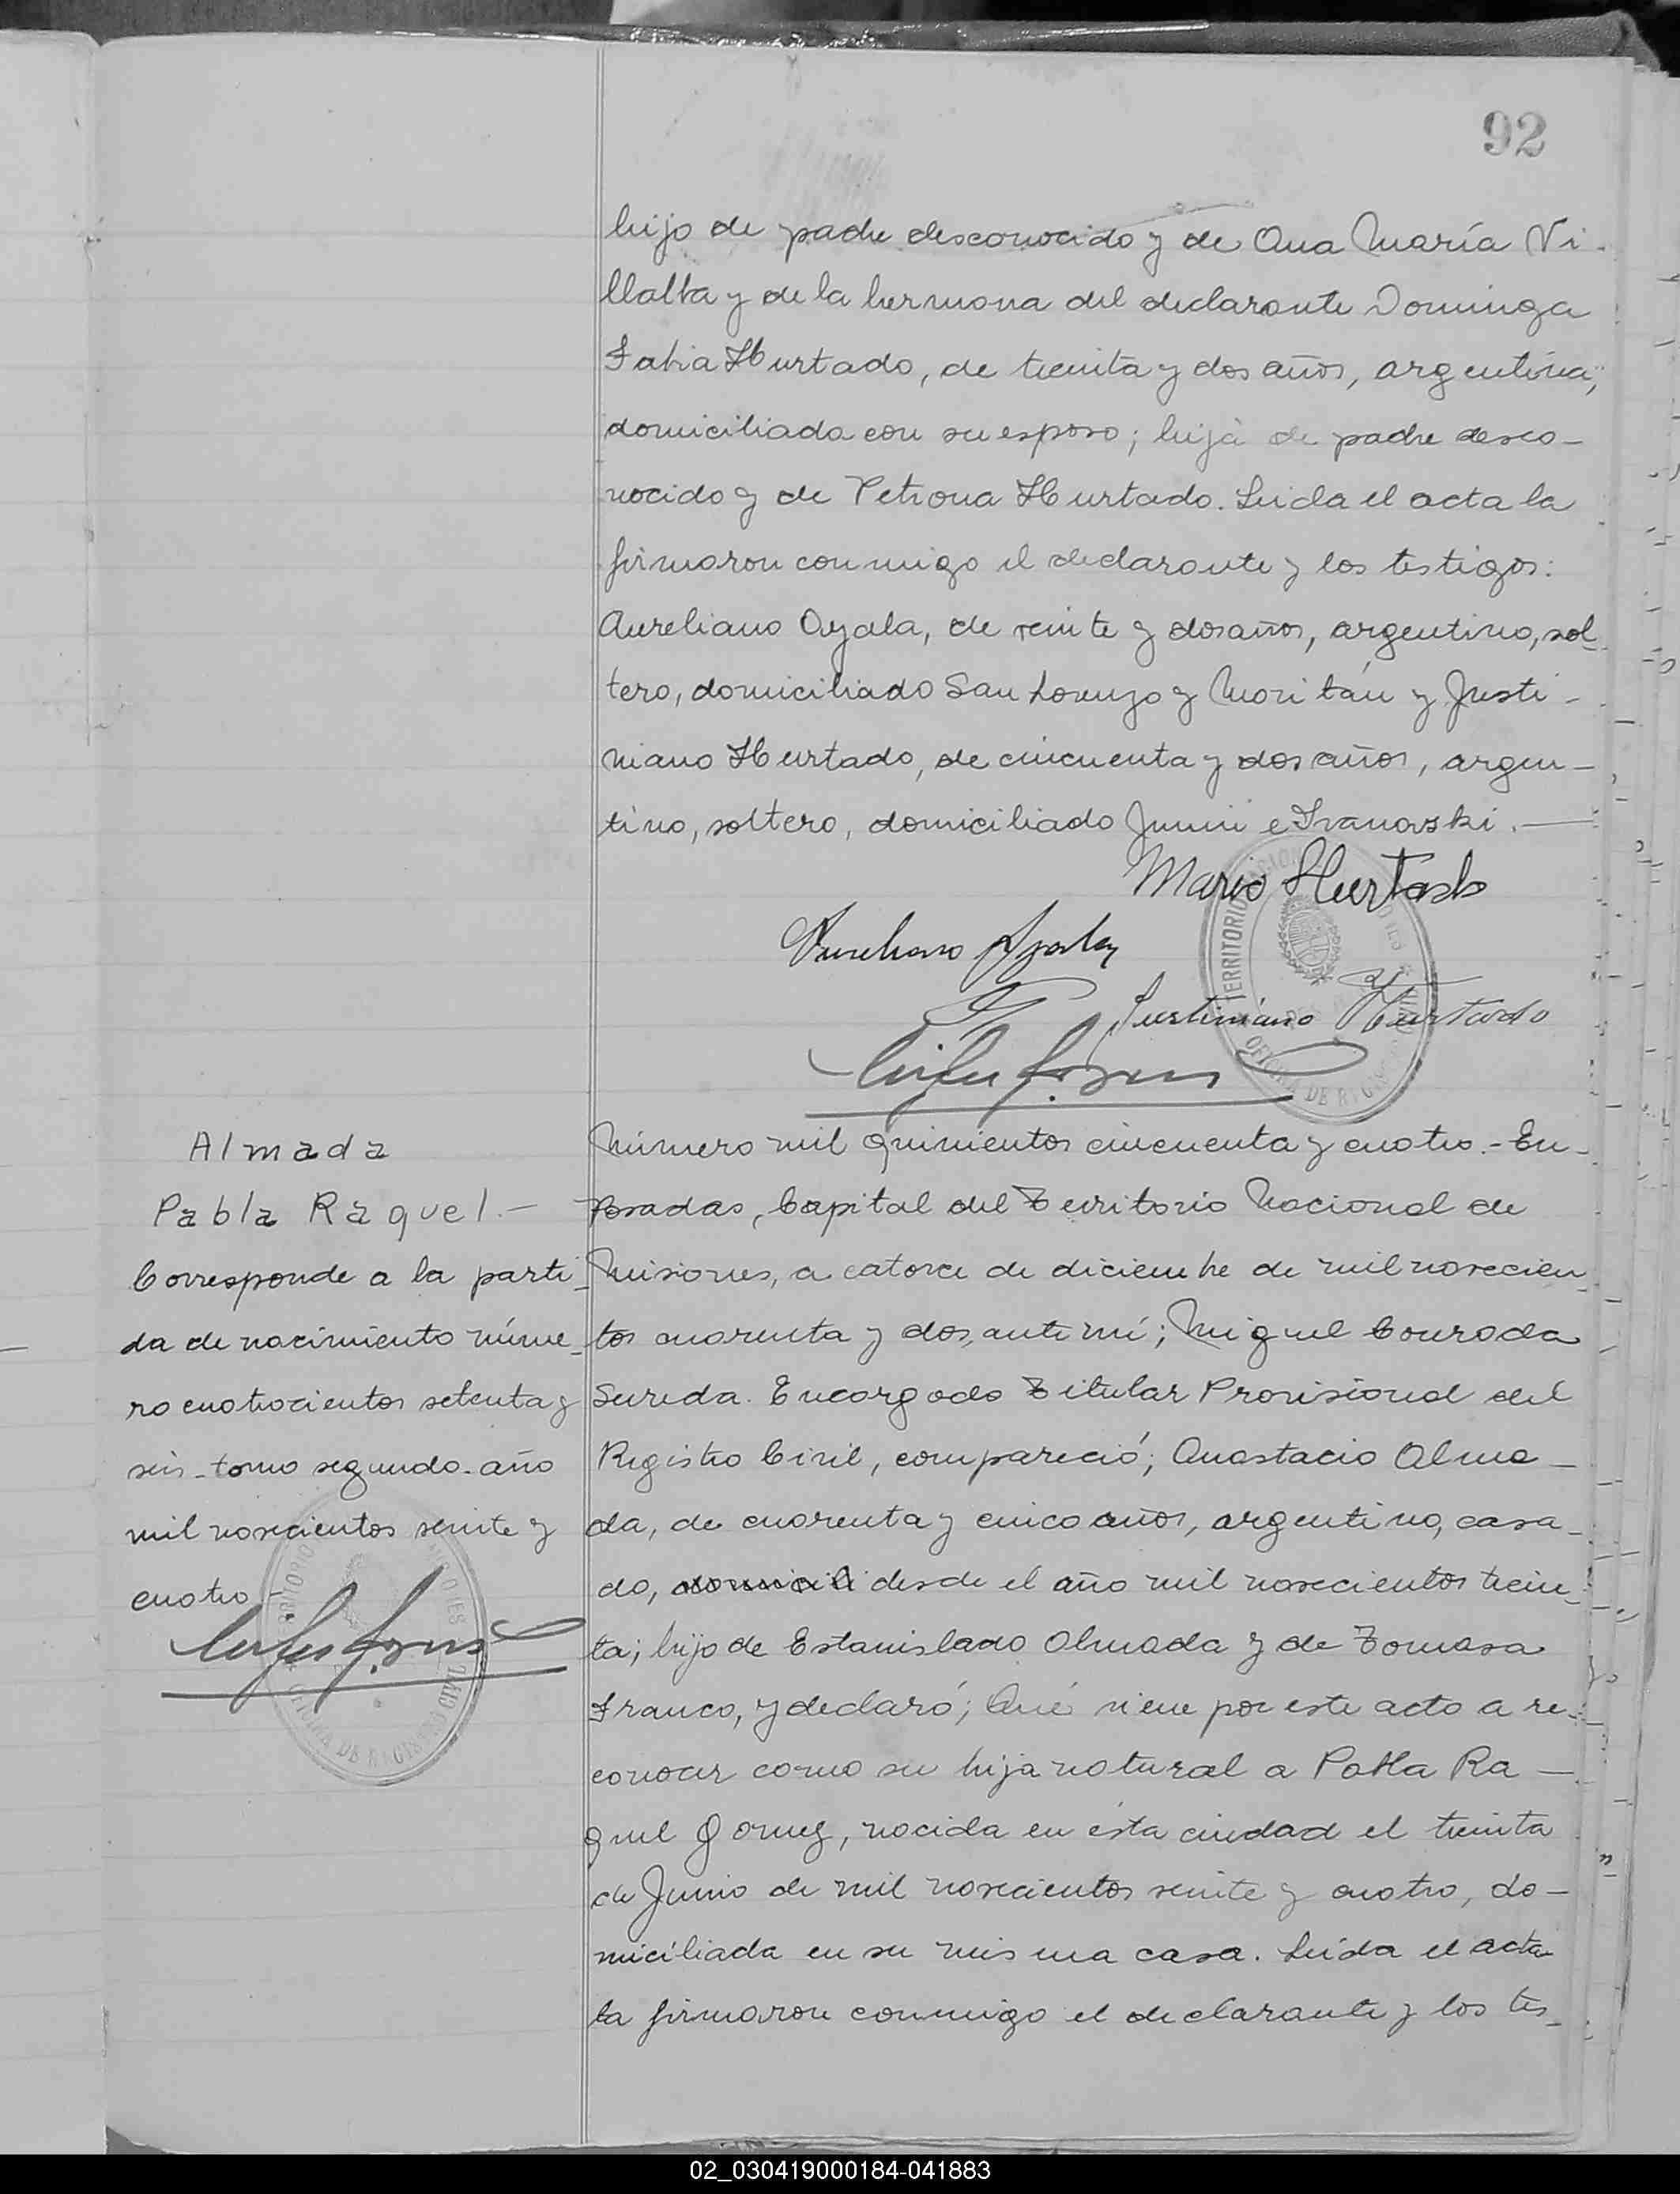 92
hijo de padre desconocido y de Ana María Vi-
llalba y de la hermana del declarante Dominga
Fabia Hurtado, de treinta y dos años, argentina,
domiciliada con su esposo; hija de padre desco-
nocido y de Petrona Hurtado. Leida el acta la
firmaron conmigo el declarante y los testigos:
Aureliano Ayala, de veinte y dos años, argentino, sol-
tero, domiciliado San Lorenzo y Moritán y Justi-
niano Hurtado, de cincuenta y dos años, argen-
tino, soltero, domiciliado Junin e Ivanovski.
Mario Hurtado
Aureliano Ayala
Justiniano Hurtado
TERRITORIO
OFICINA DE REGISTRO CIVIL
Almada
Pabla Raquel.-
Corresponde a la parti-
da de nacimiento núme-
ro cuatrocientos setenta y
seis-tomo segundo-año
mil novecientos veinte y
cuatro
TERRITORIO MISIONES
OFICINA DE REGISTRO CIVIL
Número mil quinientos cincuenta y cuatro.- En
Posadas, Capital del Territorio Nacional de
Misiones, a catorce de diciembre de mil novecien-
tos cuarenta y dos, ante mí; Miguel Conrado
Sureda. Encargado Titular Provisional del
Registro Civil, compareció; Anastacio Alma-
da, de cuarenta y cinco años, argentino, casa-
do, domicili desde el año mil novecientos trein-
ta; hijo de Estanislado Almada y de Tomasa
Franco, y declaró; Que viene por este acto a re-
conocer como su hija natural a Pabla Ra-
quel Gomez, nacida en ésta ciudad el treinta
de Junio de mil novecientos veinte y cuatro, do-
miciliada en su misma casa. Leída el acta
la firmaron conmigo el declarante y los tes-
02_030419000184-041883